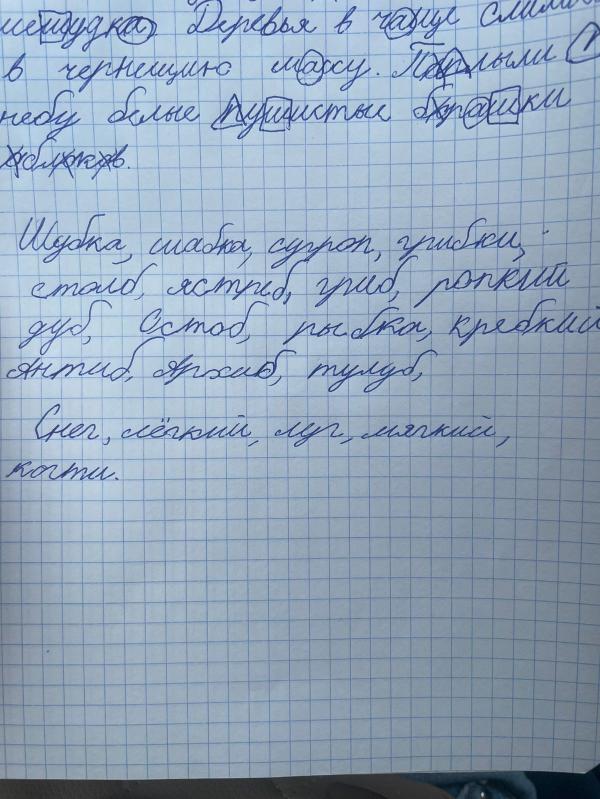 Деревья в чаще
в чернищую массу. Поплыли
небу белые пушистые барашки
облаков.
Шубка, шабка, сугроп, грибки,
столб, ястреб, гриб, ропкий
дуб, Остоб, рыбка, кребкий
Антиб, Архиб, тулуб,
Снег, лёгкий, луг, мягкий,
когти.